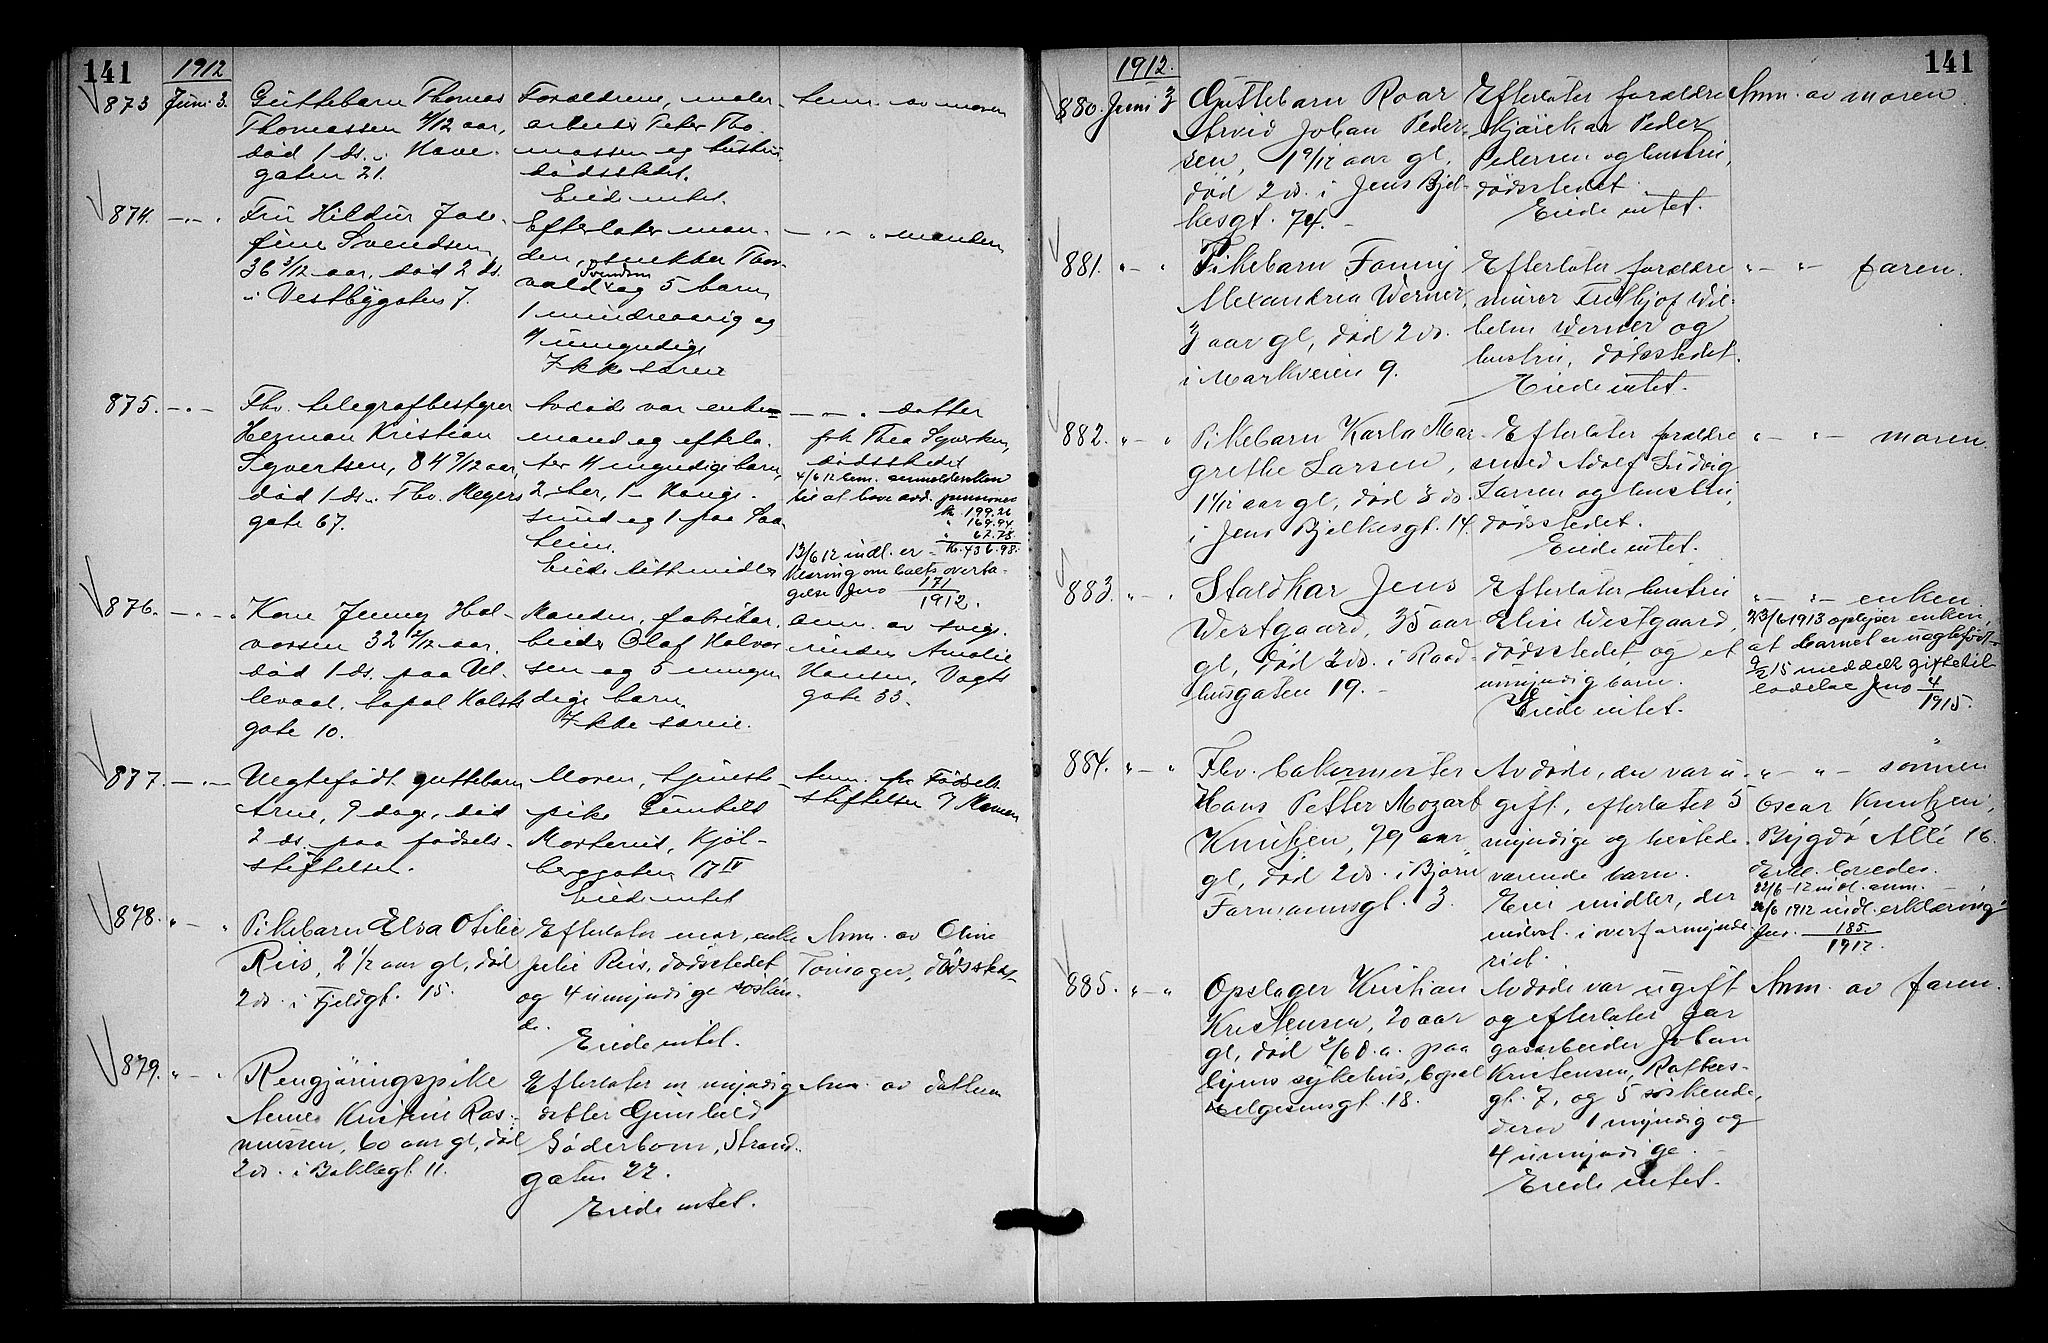 141
1912
873 Juni 3.
Guttebarn Thomas
Thomassen 4/12 aar,
død 1 ds. i Have-
gaten 21.
Forældrene, maler-
arbeider Peter Tho-
massen og hustru
dødsstedet.
Eiede intet.
Anm. av moren
874. — " —
Fru Hildur Jose-
fine Svendsen,
36 3/12 aar, død 2 ds.
i Vestbygaten 7.
Efterlater man-
den, snekker Thor-
vald Svendsen og 5 barn,
1 mindreaarig og
4 umyndige
Ikke særeie
— " — manden
875. — " —
Fhv. telegrafbestyrer
Herman Kristian
Syvertsen, 84 9/12 aar,
død 1 ds. i Thv. Meyers
gate 67.
Avdøde var enke-
mand og efterla-
ter 4 myndige barn,
2 her, 1 i Hauge-
sund og 1 paa
Eiede litt midler
— " — datter
frk. Thea Syvertsen,
dødsstedet
4/6 12 anmelderen
til at have avd. pensioner
kr. 199.26
" 169.94
" 67.78
kr. 436.98.
13/6 12 indl. er-
klæring om boets overta-
gelse Jno 171/1912.
876. — " —
Kone Jenny Hal-
vorsen 32 2/12 aar.
død 1 ds. paa Ul-
levaal, bopæl Holsts
gate 10.
Manden, fabrikar-
beider Olaf Halvor-
sen og 5 umyn-
dige barn.
Ikke særeie.
anm. av svige-
rinden Amalie
Hansen, Vogts
gate 33.
877. — " —
Uegtefødt guttebarn
Arne, 9 dage, død
2 ds. paa fødsels-
stiftelsen.
Moren, tjeneste-
pike Gunhild
Morterud, Kjøl-
berggaten 17 II
Eiede intet
Anm. fr. Fødsels-
stiftelsen
878. " — "
Pikebarn Elsa Otilie
Riis, 2 1/2 aar gl, død
2 ds. i Fjeldgt. 15.
Efterlater mor, enke
Julie Riis, dødsstedet
og 4 umyndige søsken-
de.
Eiede intet.
Anm. av Oline
Tomager, dødsstedet
879. " — "
Rengjøringspike
Anne Kristine Ras-
mussen, 60 aar gl, død
2 ds. i Bakkegt. 11.
Efterlater en myndig
datter Gunhild
Søderbom, Strand-
gaten 22.
Eiede intet.
Anm. av datteren
1912.
141
880. Juni 3
Guttebarn Roar
Arvid Johan Peder-
sen, 1 9/12 aar gl.
død 2 ds. i Jens Bjel-
kesgt. 74. —
Efterlater forældre
kjørekar Peder
Pedersen og hustru,
dødsstedet.
Eiede intet.
Anm. av moren.
881. " — "
Pikebarn Fanny
Alexandria Werner,
3 aar gl, død 2 ds.
i Markveien 9.
Efterlater forældre
murer Fridtjof Wil-
helm Werner og
hustru, dødsstedet.
Eiede intet.
" — " — faren.
882. " — "
Pikebarn Karla Mar-
grethe Larsen,
1 4/12 aar gl, død 3 ds.
i Jens Bjelkesgt. 14.
Efterlater forældre
smed Adolf Ludvig
Larsen og hustru,
dødsstedet.
Eiede intet.
" — " — moren.
883. " — "
Staldkar Jens
Westgaard, 35 aar
gl, død 2 ds. i Raad-
husgaten 19. —
Efterlater hustru
Elise Westgaard,
dødsstedet og et
umyndig barn.
Eiede intet.
" — " — enken.
23/6 1913 oplyser enken,
at barnet er uegtefødt —
9/2 15 meddelt giftetil-
ladelse Jno 4/1915.
884. " — "
Fhv. bakermester
Hans Petter Mozart
Knutzen, 79 aar
gl, død 2 ds. i Bjørn
Farmannsgt. 3.
Avdøde, der var u-
gift, efterlater 5
myndige og tilstede-
værende barn.
Eier midler, der
indest. i overformynde-
riet.
" — " — sønnen
Oscar Knutzen,
Bygdø Allé 16.
Erkl. lovedes.
22/6 - 12 indl. anm. —
26/6 1912 indl. erklæring
Jno. 185/1912.
885. " — "
Opslager Kristian
Kristensen, 20 aar
gl, død 2/6 d.a. paa
byens sykehus, bopæl
Helgesensgt. 18.
Avdøde var ugift
og efterlater far
gasarbeider Johan
Kristensen, Rathkes-
gt. 7, og 5 søskende,
derav 1 myndig og
4 umyndige. —
Eiede intet.
Anm. av faren.